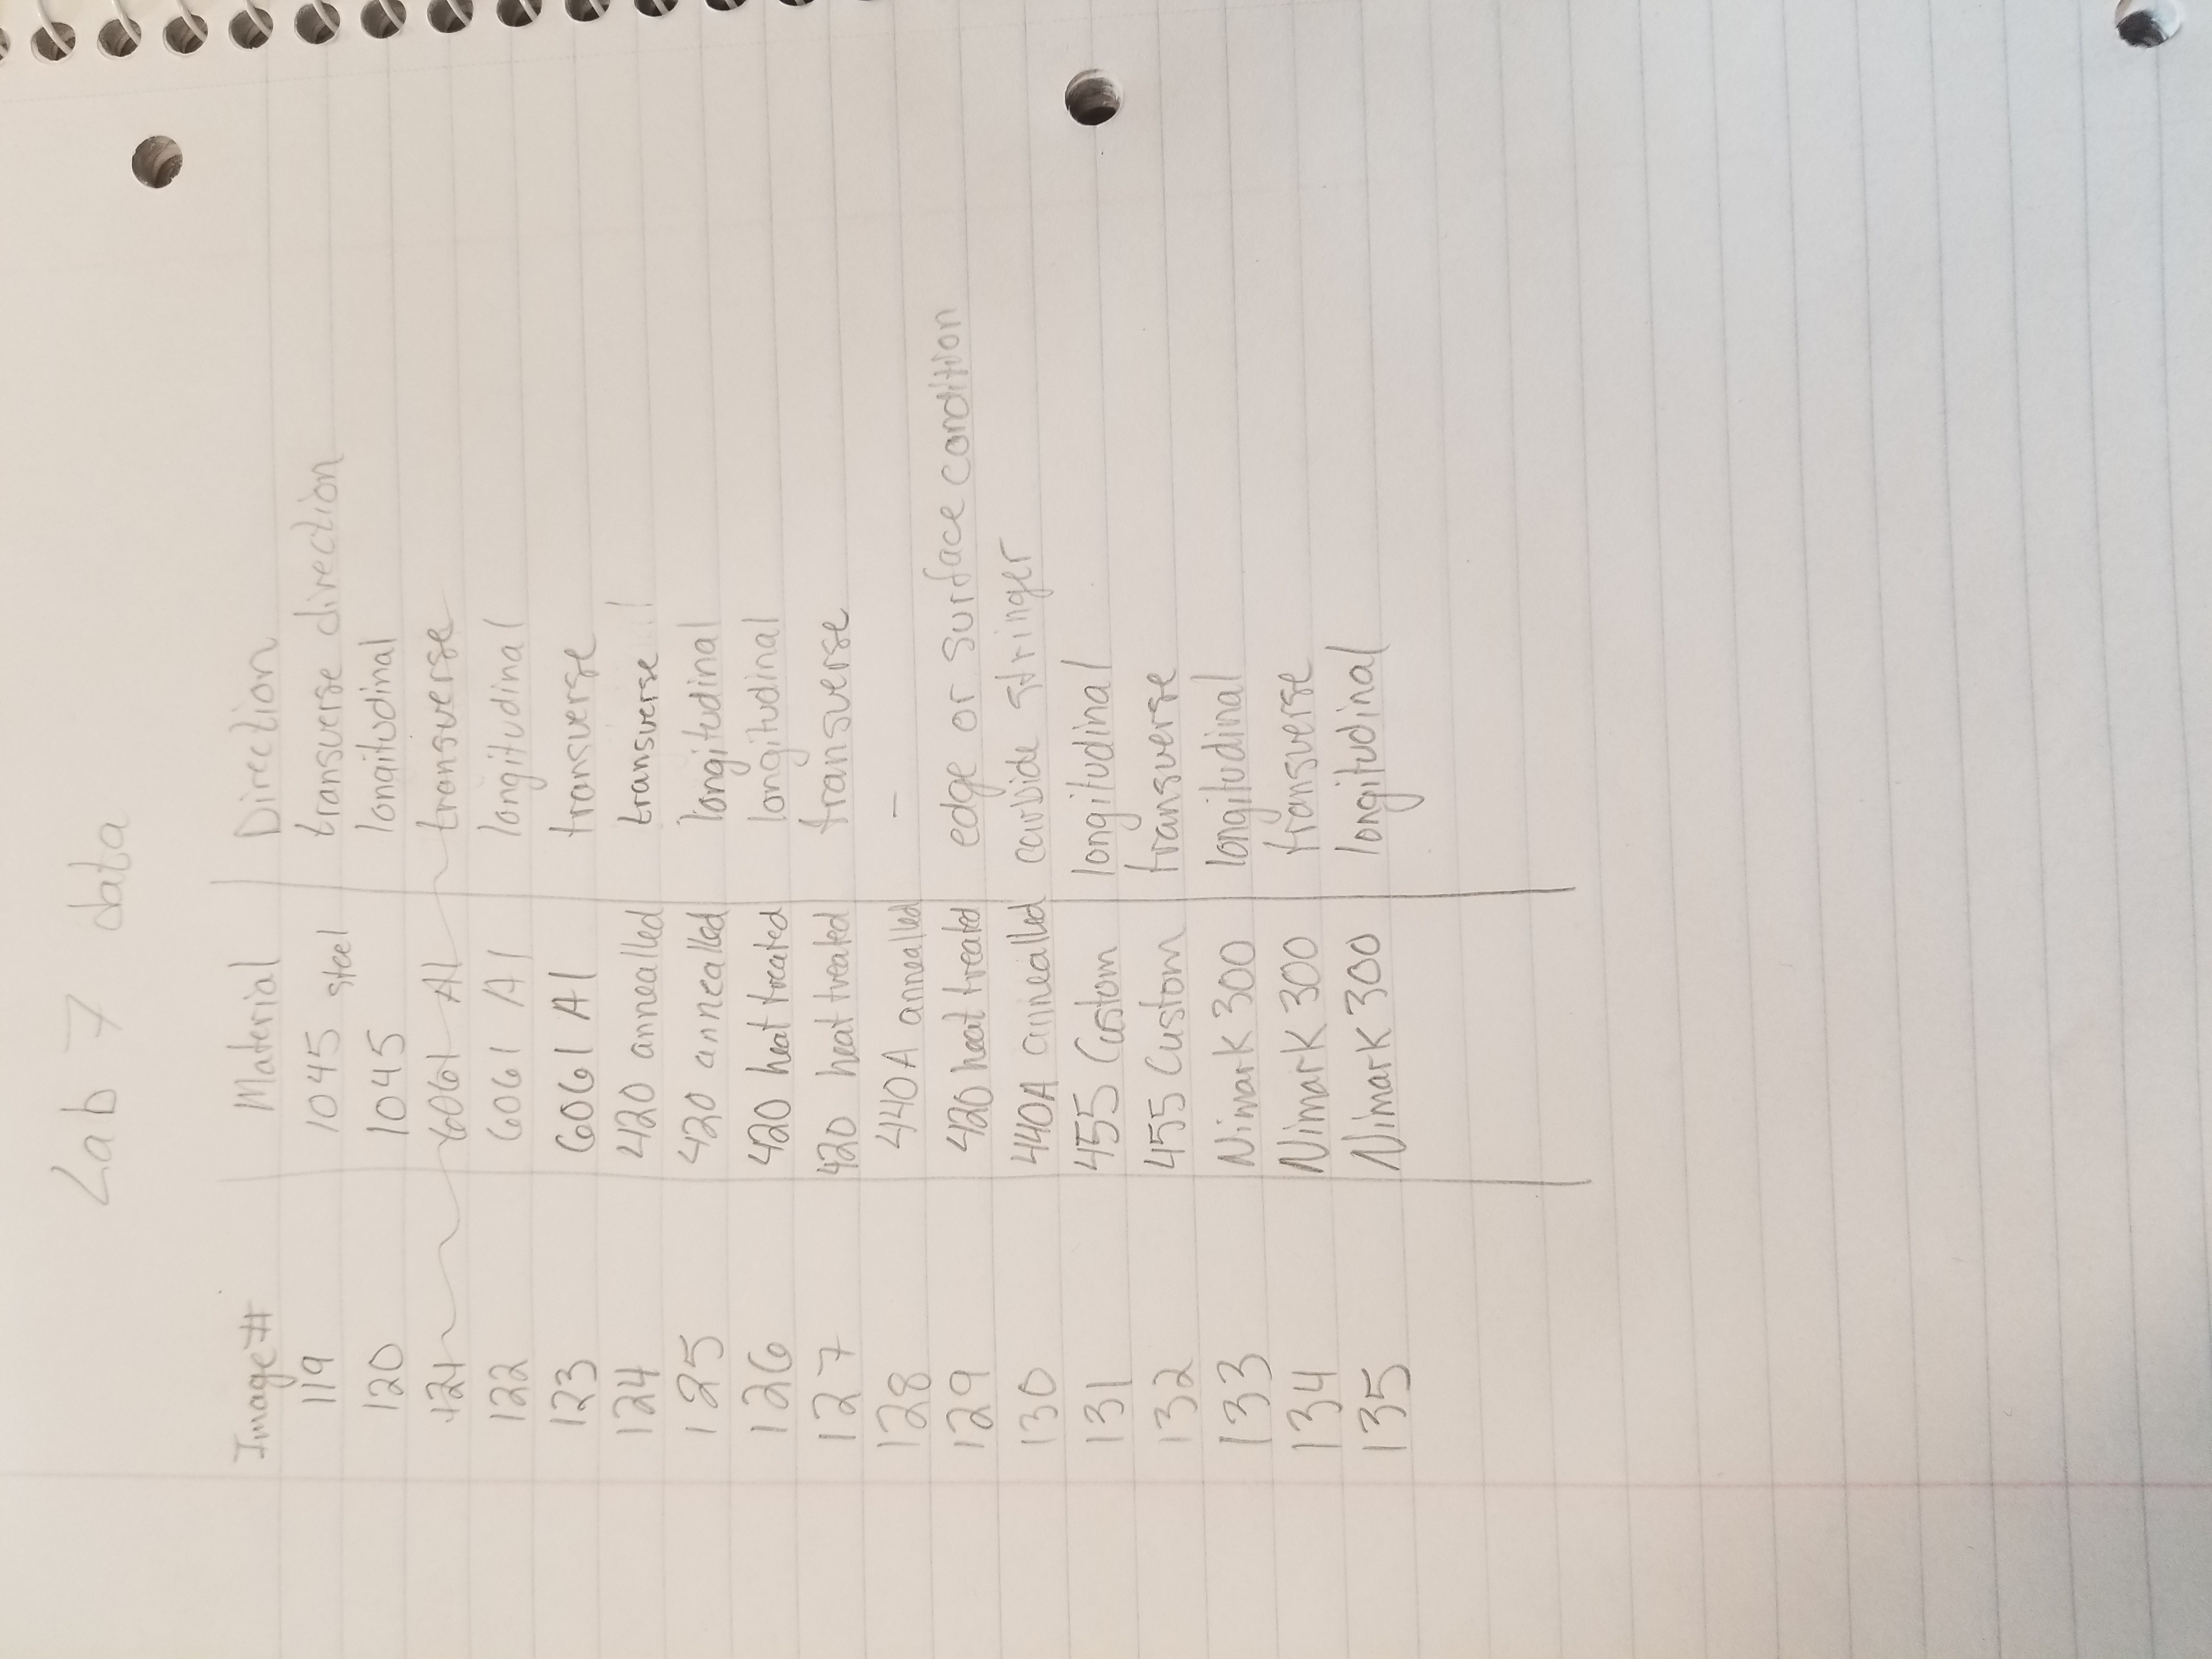 Lab 7 data
Image # Material Direction
119 1045 steel transverse direction
120 1045 longitudinal
121 6061 Al transverse
122 6061 Al longitudinal
123 6061 Al transverse
124 420 annealled transverse
125 420 annealled longitudinal
126 420 heat treated longitudinal
127 420 heat treated transverse
128 440A annealled -
129 420 heat treated edge or surface condition
130 440A annealled carbide stringer
131 455 Custom longitudinal
132 455 Custom transverse
133 Nimark 300 longitudinal
134 Nimark 300 transverse
135 Nimark 300 longitudinal